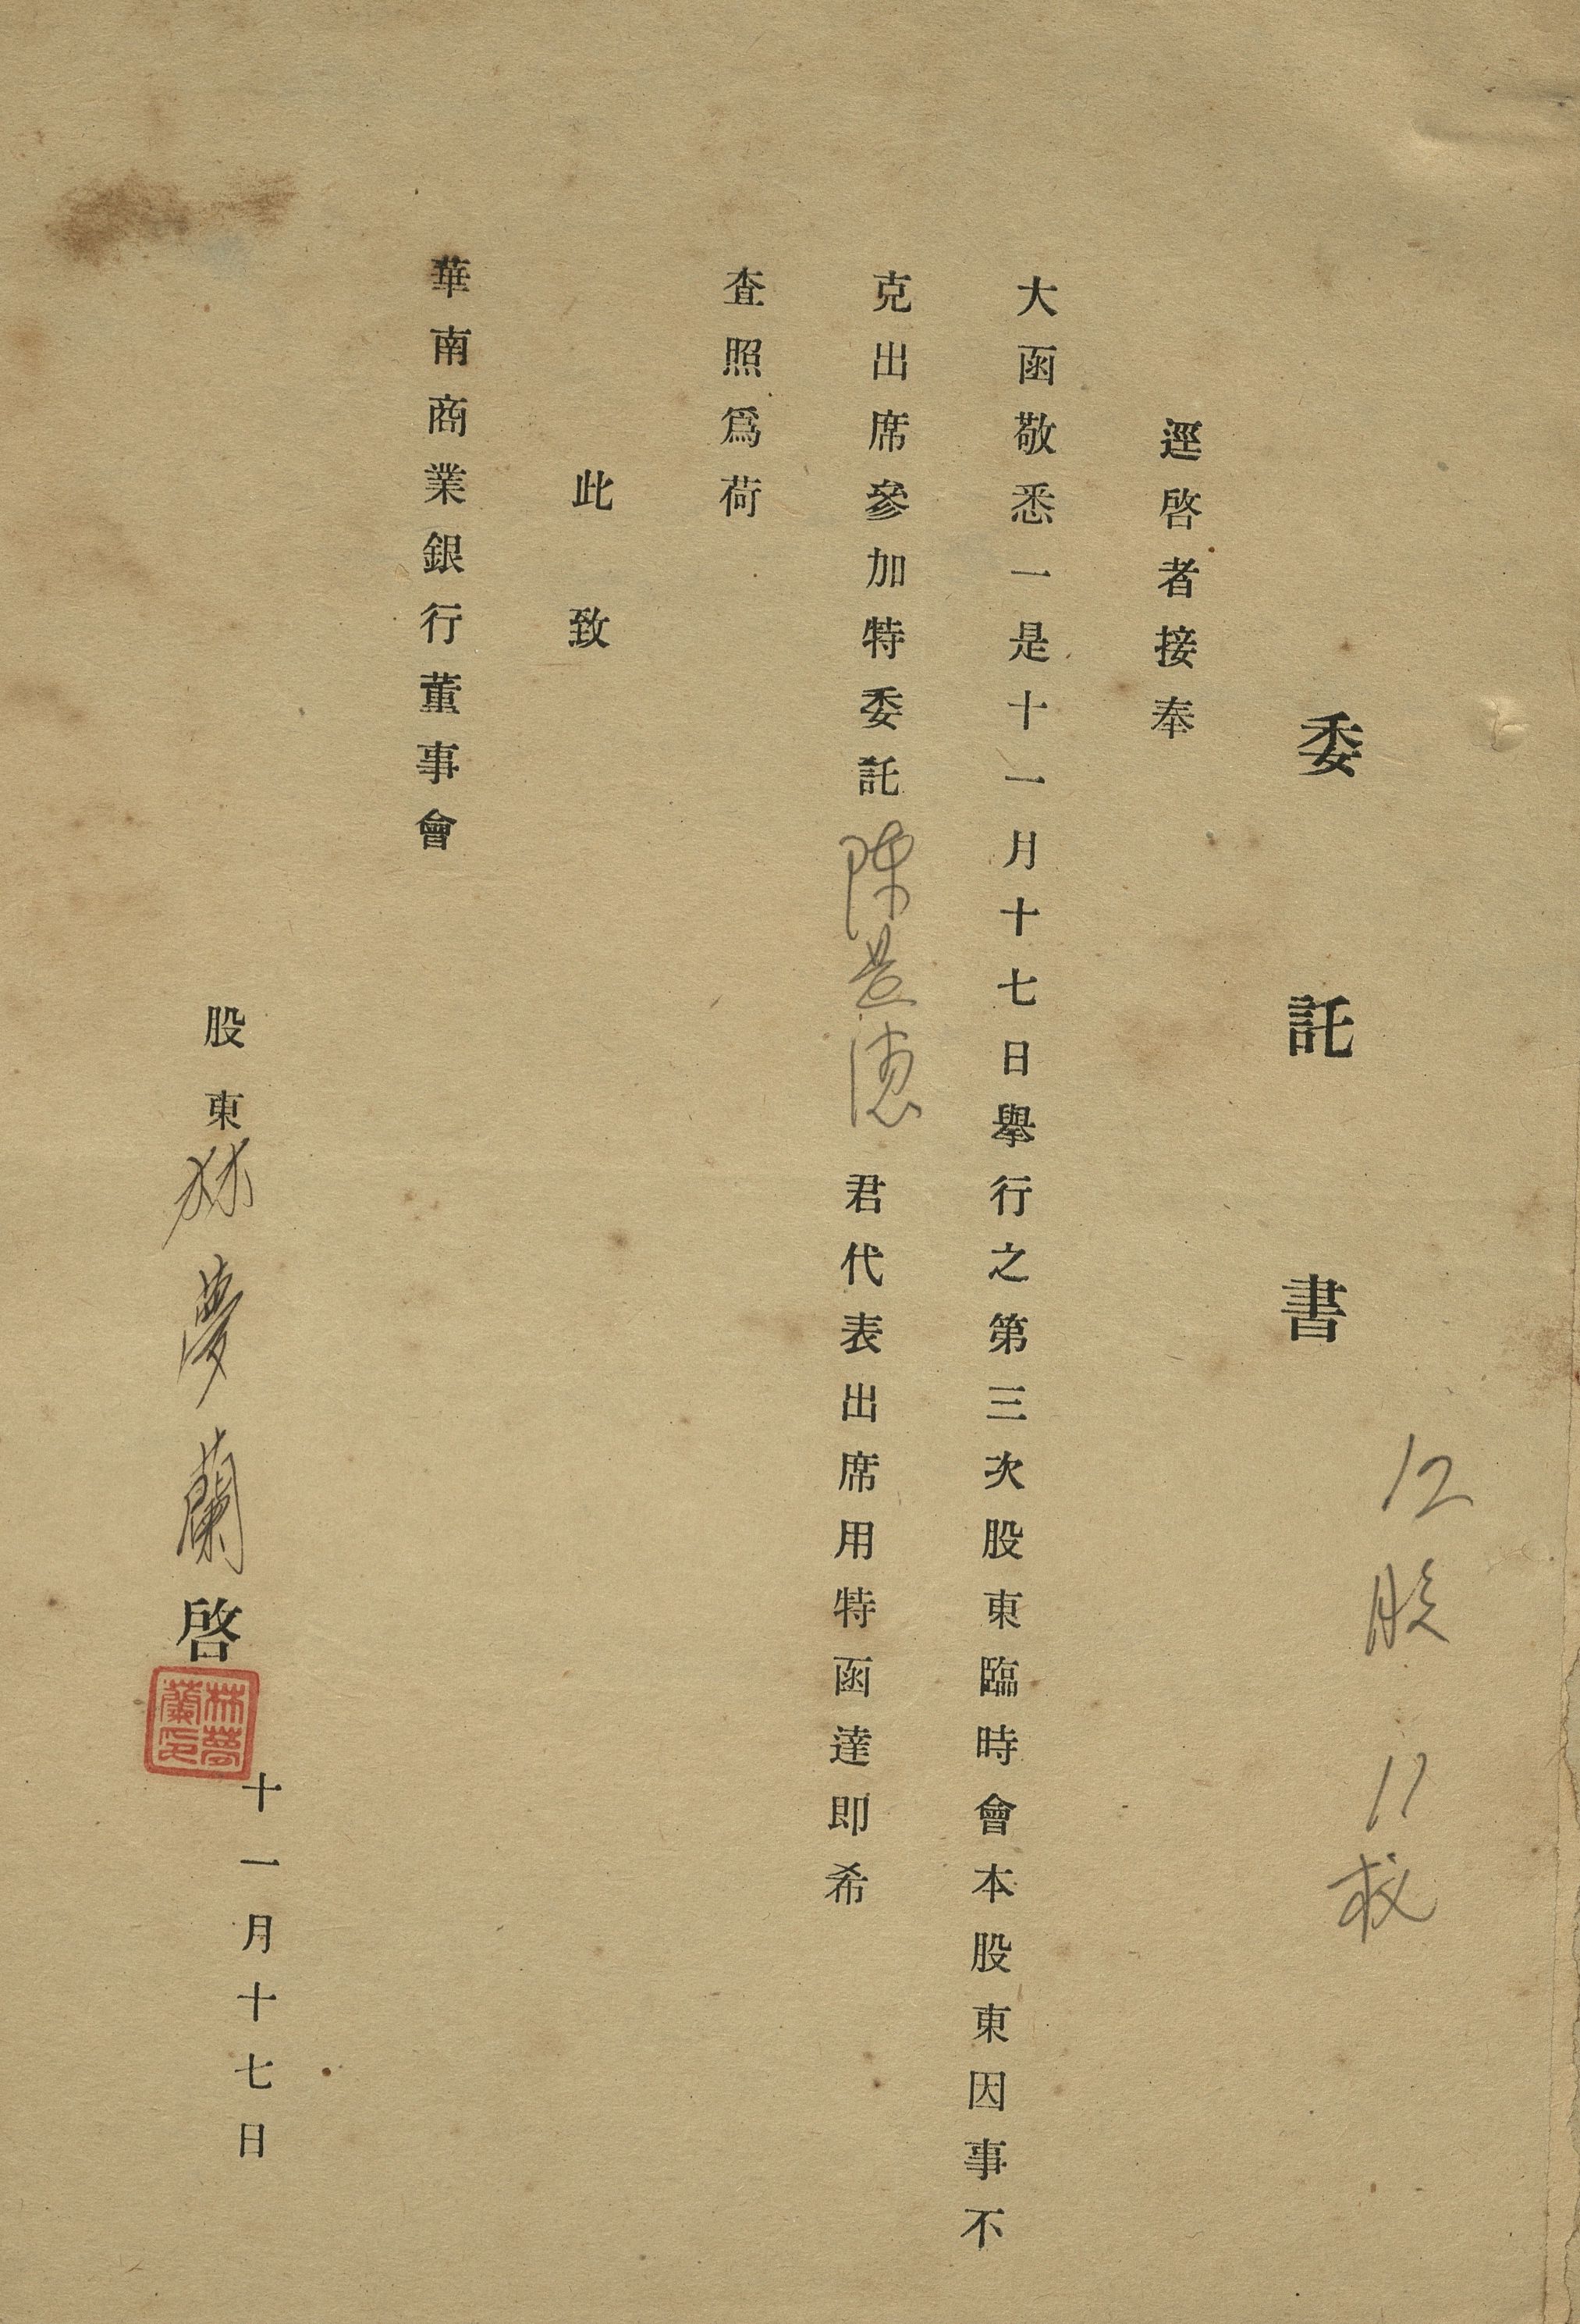 12股 11权
委託書
逕啓者接奉
大函敬悉一是十一月十七日舉行之第三次股東臨時會本股東因事不
克出席參加特委託陳 君代表出席用特函達即希
查照爲荷
此致
華南商業銀行董事會
股東林夢蘭啓
林夢蘭印
十一月十七日